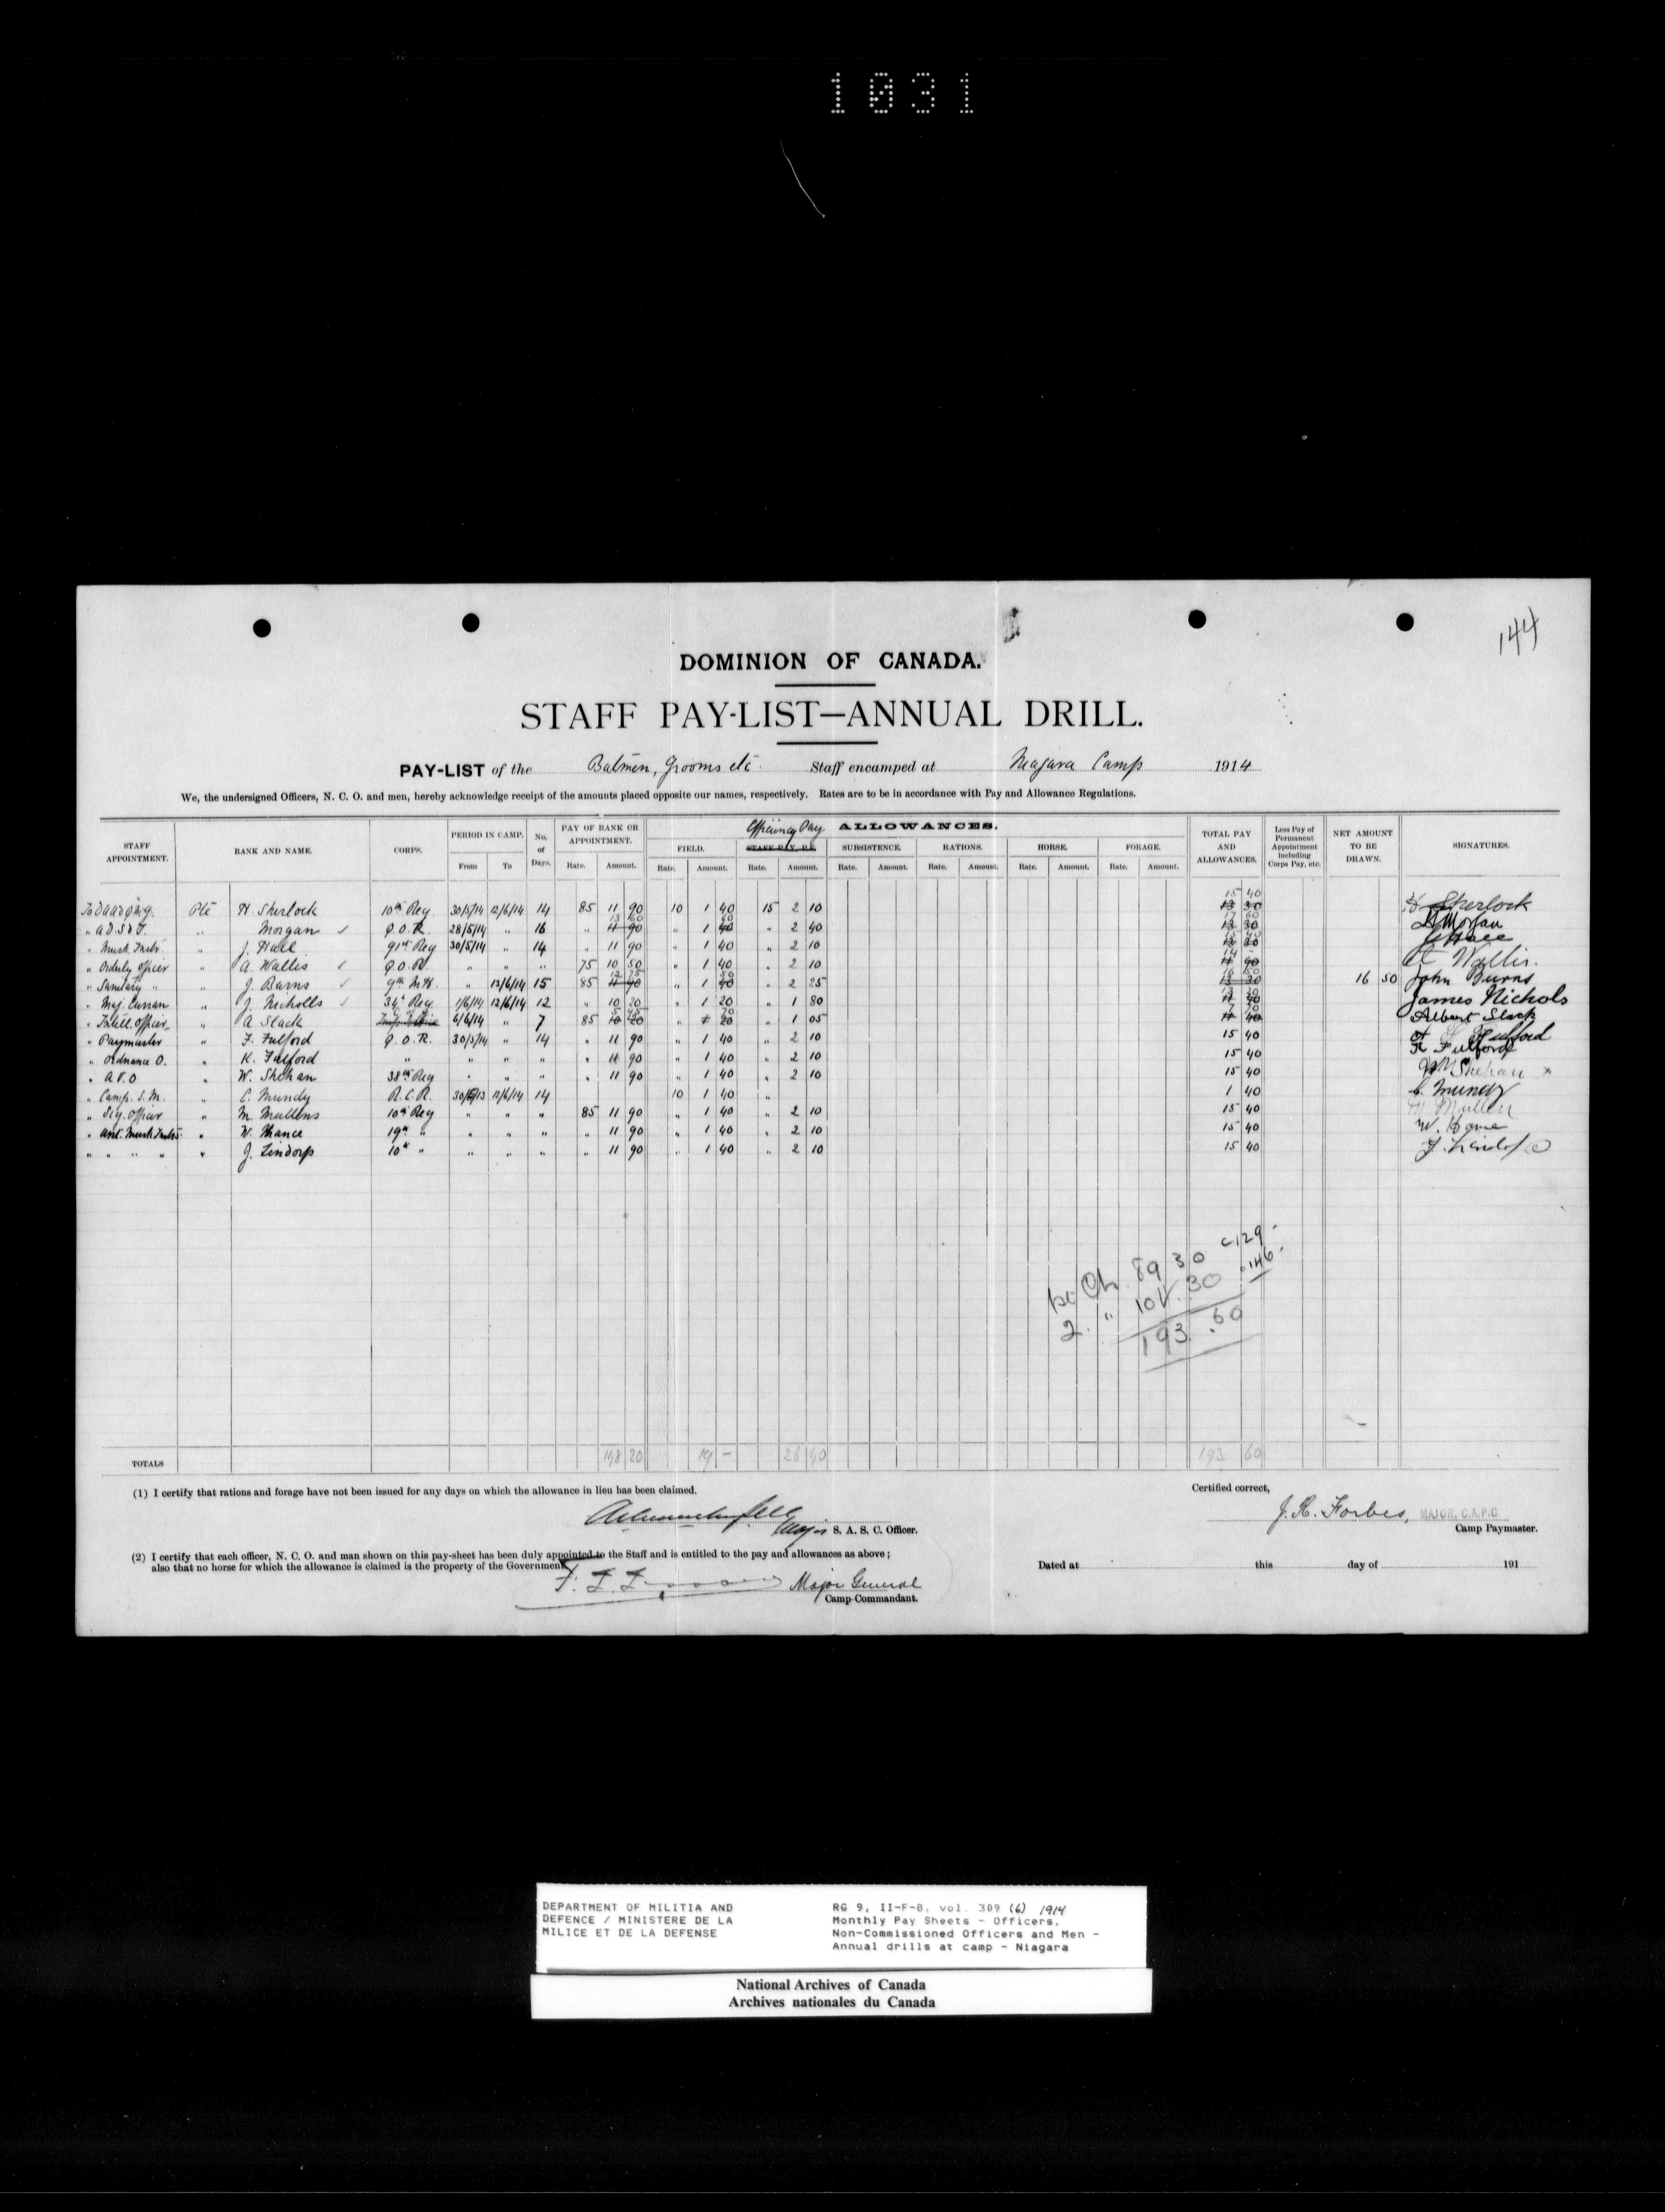 1031
144
DOMINION OF CANADA.
STAFF PAY-LIST—ANNUAL DRILL.
PAY-LIST of the Batmen, Grooms etc Staff encamped at Niagara Camp 1914
We, the undersigned Officers, N. C. O. and men, hereby acknowledge receipt of the amounts placed opposite our names, respectively. Rates are to be in accordance with Pay and Allowance Regulations.
STAFF APPOINTMENT. RANK AND NAME. CORPS. PERIOD IN CAMP. From To No. of Days. PAY OF RANK OR APPOINTMENT. Rate. Amount. ALLOWANCES. FIELD. Rate. Amount. Efficiency Pay STAFF PAY, P.F. Rate. Amount. SUBSISTENCE. Rate. Amount. RATIONS. Rate. Amount. HORSE. Rate. Amount. FORAGE. Rate. Amount. TOTAL PAY AND ALLOWANCES. Less Pay of Permanent Appointment including Corps Pay, etc. NET AMOUNT TO BE DRAWN. SIGNATURES.
Pte H. Sherlock 10th Reg 30/5/14 12/6/14 14 85 11 90 10 1 40 15 2 10 15 40 13 30 H Sherlock
" A.D.S&T. " Morgan ✓ Q.O.R. 28/5/14 " 16 " 13 60 11 90 " 1 60 40 " 2 40 17 60 13 30 Morgan
" Musk. Instr. " J. Hall 91st Reg 30/5/14 " 14 " 11 90 " 1 40 " 2 10 15 40 13 30
" Orderly Officer " A. Wallis ✓ Q.O.R. " " " 75 10 50 " 1 40 " 2 10 14 - 11 90 A Wallis.
" Sanitary " " J. Barns ✓ 9th M.H. " 13/6/14 15 85 12 75 11 90 " 1 50 40 " 2 25 16 50 13 30 16 50 John Burns
" Maj. Curran " J. Nicholls ✓ 34th Reg 1/6/14 12/6/14 12 " 10 20 " 1 20 " 1 80 13 20 James Nichols
" Intell. Officer " A Slack 6/6/14 " 7 85 5 95 10 20 " 70 1 20 " 1 05 7 70 11 40 Albert Slack
" Paymaster " F. Fulford Q.O.R. 30/5/14 " 14 " 11 90 " 1 40 " 2 10 15 40 Fulford
" Ordnance O. " K. Fulford " " " " " 11 90 " 1 40 " 2 10 15 40 K Fulford
" A.V.O " W. Shehan 38th Reg " " " " 11 90 " 1 40 " 2 10 15 40 Wm Shehan x
" Camp. S.M. " C. Mundy R.C.R. 30/5/13 12/6/14 14 10 1 40 " 1 40 C. Mundy
" Sig. Officer " M. Mullens 10th Reg " " " 85 11 90 " 1 40 " 2 10 15 40 M Mullen
" Asst. Musk Instr. " W. Hance 19th " " " " " 11 90 " 1 40 " 2 10 15 40
" " " " " J. Lindorp 10th " " " " " 11 90 " 1 40 " 2 10 15 40
1st Ch 89 30 c 129 -
2. " 104. 30 " 146 -
193.60
TOTALS 148 20 19 - 26 40 193 60
(1) I certify that rations and forage have not been issued for any days on which the allowance in lieu has been claimed.
Major S. A. S. C. Officer.
(2) I certify that each officer, N. C. O. and man shown on this pay-sheet has been duly appointed to the Staff and is entitled to the pay and allowances as above;
also that no horse for which the allowance is claimed is the property of the Government.
Major General
Camp Commandant.
Certified correct,
J. R. Forbes, MAJOR, C.A.P.C.
Camp Paymaster.
Dated at this day of 191
DEPARTMENT OF MILITIA AND
DEFENCE / MINISTERE DE LA
MILICE ET DE LA DEFENSE
RG 9, II-F-8, vol. 309 (6) 1914
Monthly Pay Sheets - Officers,
Non-Commissioned Officers and Men -
Annual drills at camp - Niagara
National Archives of Canada
Archives nationales du Canada